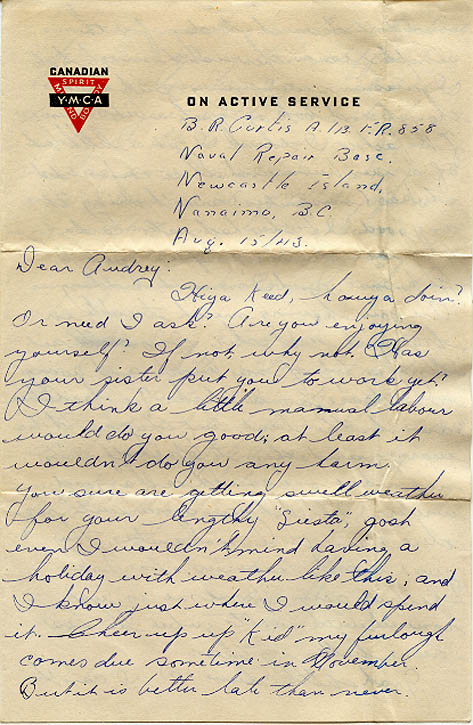 CANADIAN
SPIRIT
Y·M·C·A
MIND BODY
ON ACTIVE SERVICE
B.R. Curtis A/13. F.R. 858
Naval Repair Base.
Newcastle Island,
Nanaimo, B.C.
Aug. 15/43.
Dear Audrey:
Hiya Keed, howya doin?
Or need I ask? Are you enjoying
yourself? If not, why not. Has
your sister put you to work yet?
I think a little manual labour
would do you good; at least it
wouldn't do you any harm.
You sure are getting swell weather
for your lengthy "Siesta", gosh
even I wouldn't mind having a
holiday with weather like this; and
I know just where I would spend
it. Cheer up up "Kid" my furlough
comes due sometime in November.
But it is better late than never.